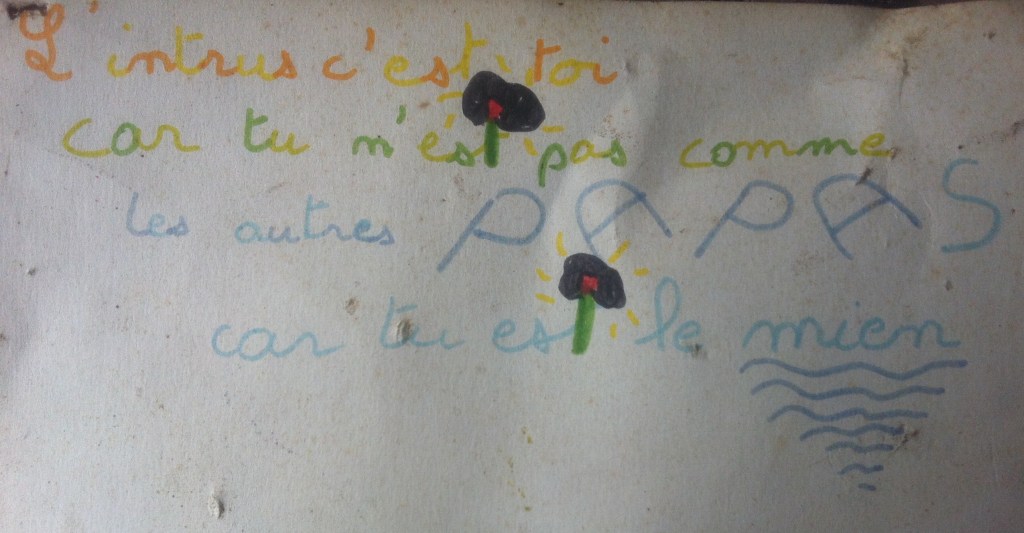 L'intrus c'est toi
car tu n'est pas comme
les autres PAPAS
car tu es le mien